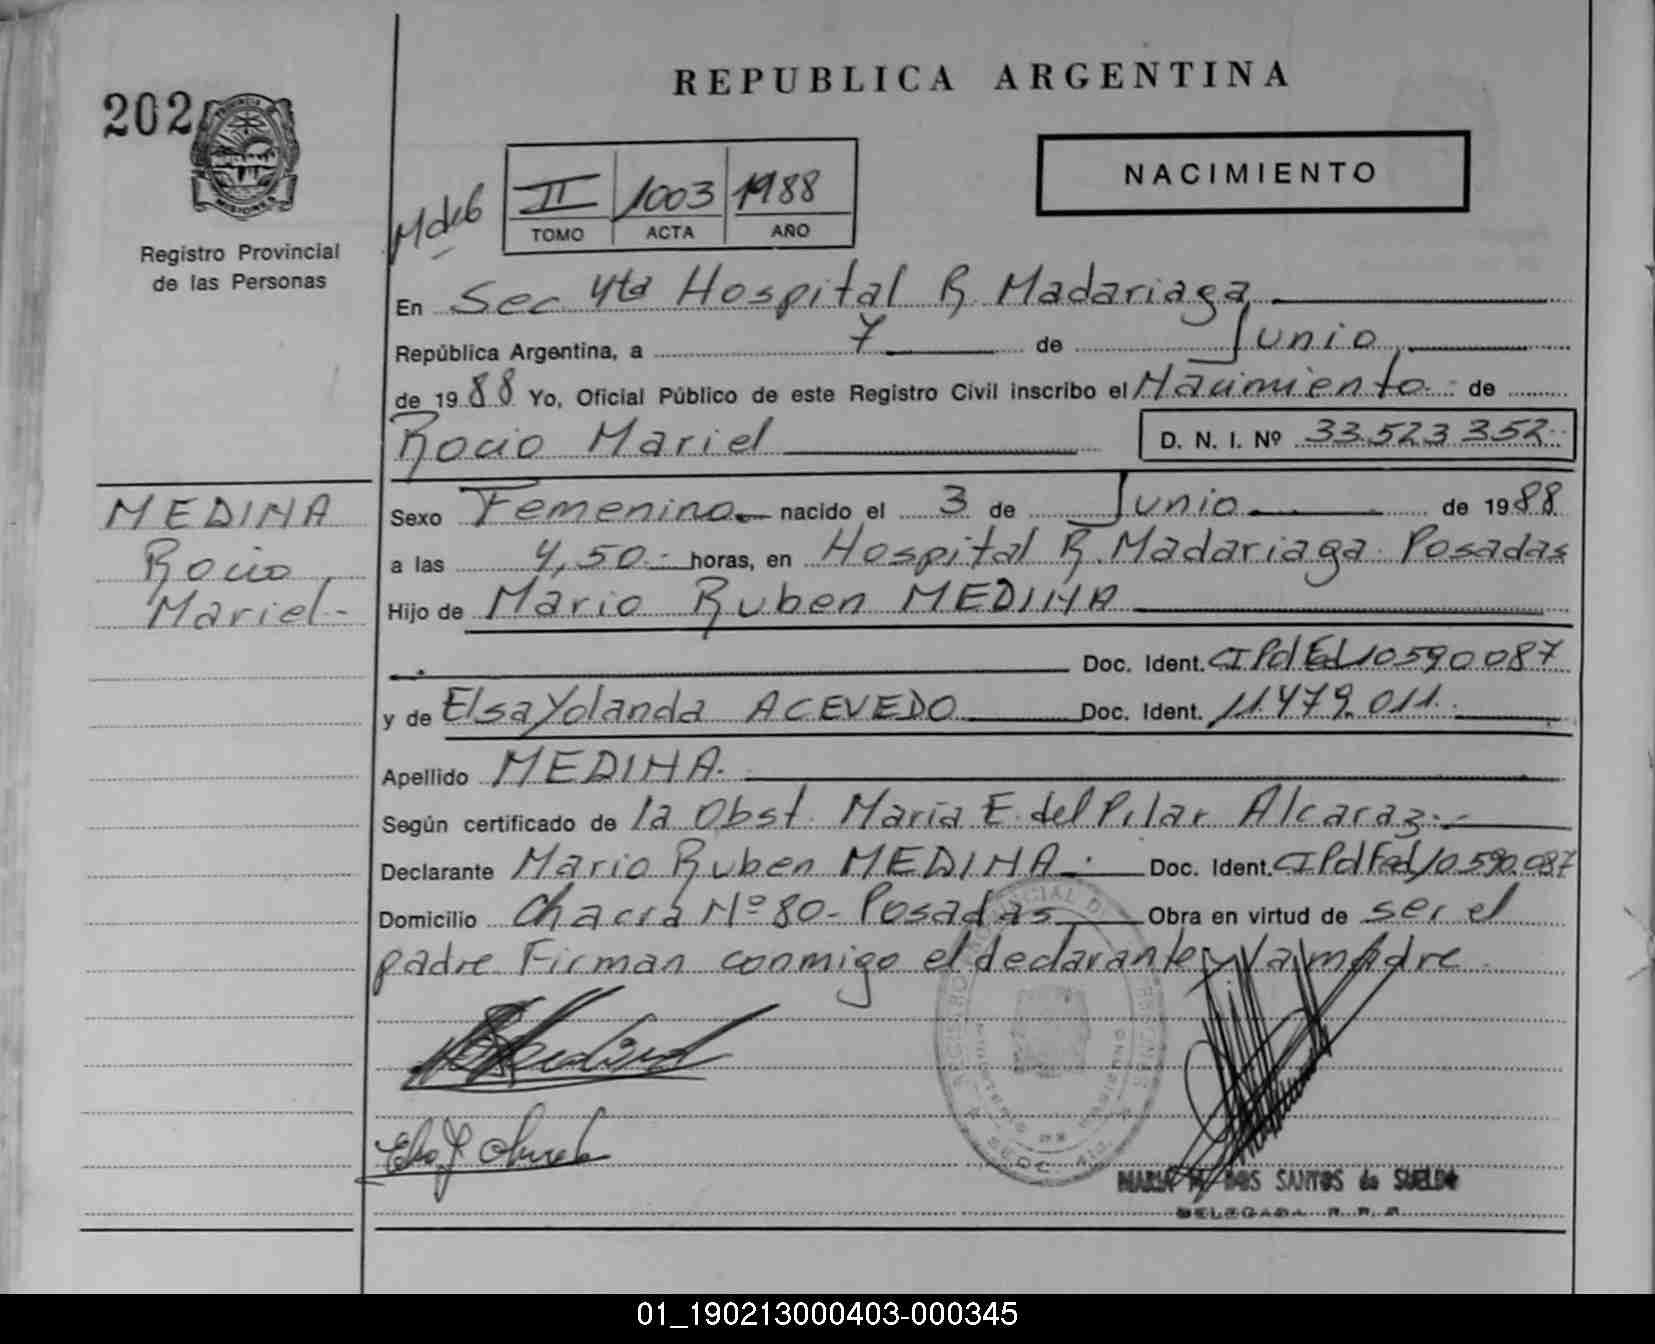 REPUBLICA ARGENTINA
202
PROVINCIA
MISIONES
Registro Provincial
de las Personas
II 1003 1988
TOMO ACTA AÑO
NACIMIENTO
En Sec 4ta Hospital R. Madariaga
República Argentina, a 7 de Junio,
de 1988 Yo, Oficial Público de este Registro Civil inscribo el Nacimiento de
Rocio Mariel D. N. I. Nº 33.523.352
MEDINA
Rocio
Mariel.-
Sexo Femenino nacido el 3 de Junio de 1988
a las 4,50.- horas, en Hospital R. Madariaga. Posadas
Hijo de Mario Ruben MEDINA
Doc. Ident. CIPdFed 10590087
y de Elsa Yolanda ACEVEDO Doc. Ident. 11.479.011.
Apellido MEDINA.
Según certificado de la Obst. Maria E. del Pilar Alcaraz.-
Declarante Mario Ruben MEDINA.- Doc. Ident. CIPdFed 10.590.087
Domicilio Chacra Nº 80- Posadas Obra en virtud de ser el
padre Firman conmigo el declarante y la madre.
MARIA DOS SANTOS de SUELDO
DELEGADA R. P. P.
01_190213000403-000345